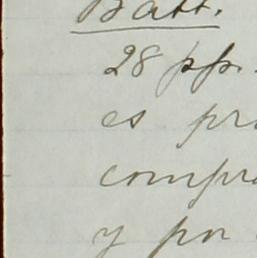 Batt.
28 pp.
es pr
compr
y por